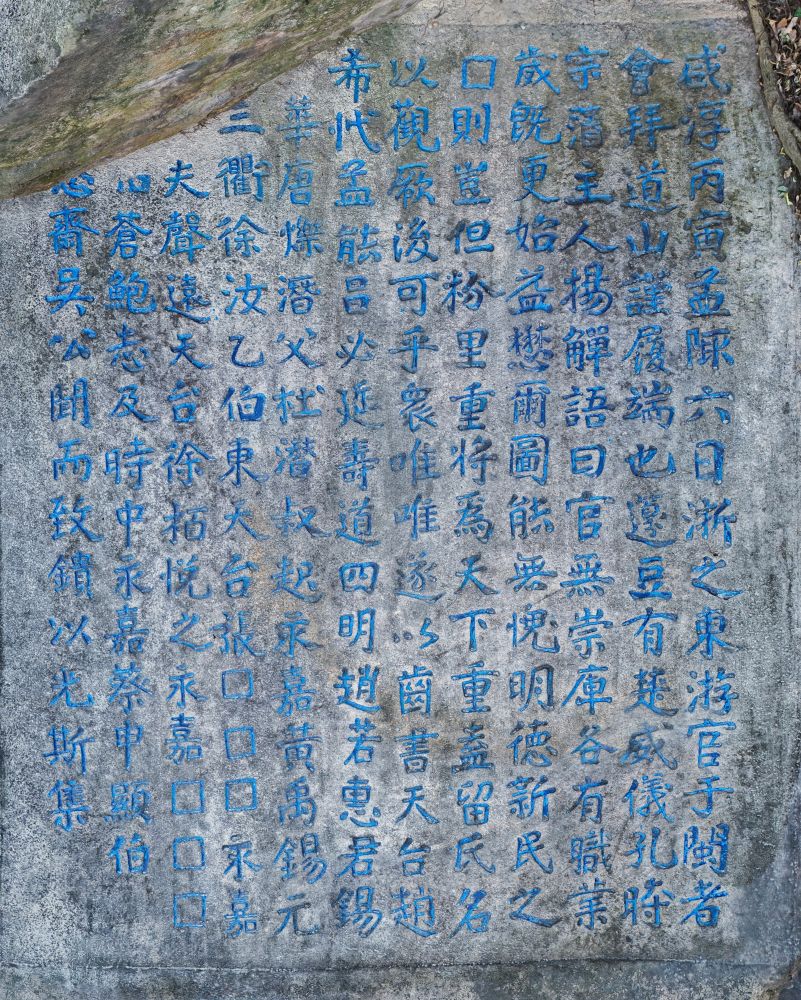 咸淳丙寅孟陬六日浙之東游官于閩者
會拜道山謹履端也籩豆有楚威儀孔時
宗藩主人揚觶語曰官無崇庳各有職業
歲既更始益懋爾圖能無愧明德新民之
□則豈但粉里重將爲天下重盍留氏名
以觀厥後可乎衆唯唯遂以齒書天台趙
希代孟能呂必延壽道四明趙若惠君錫
華唐燦潛父杜潛叔起永嘉黃禹錫元
三衢徐汝乙伯東天台張□□□永嘉
夫聲遠天台徐栢悅之永嘉□□□
蒼鮑志及時中永嘉蔡申顯伯
齋吳公聞而致鎖以光斯集